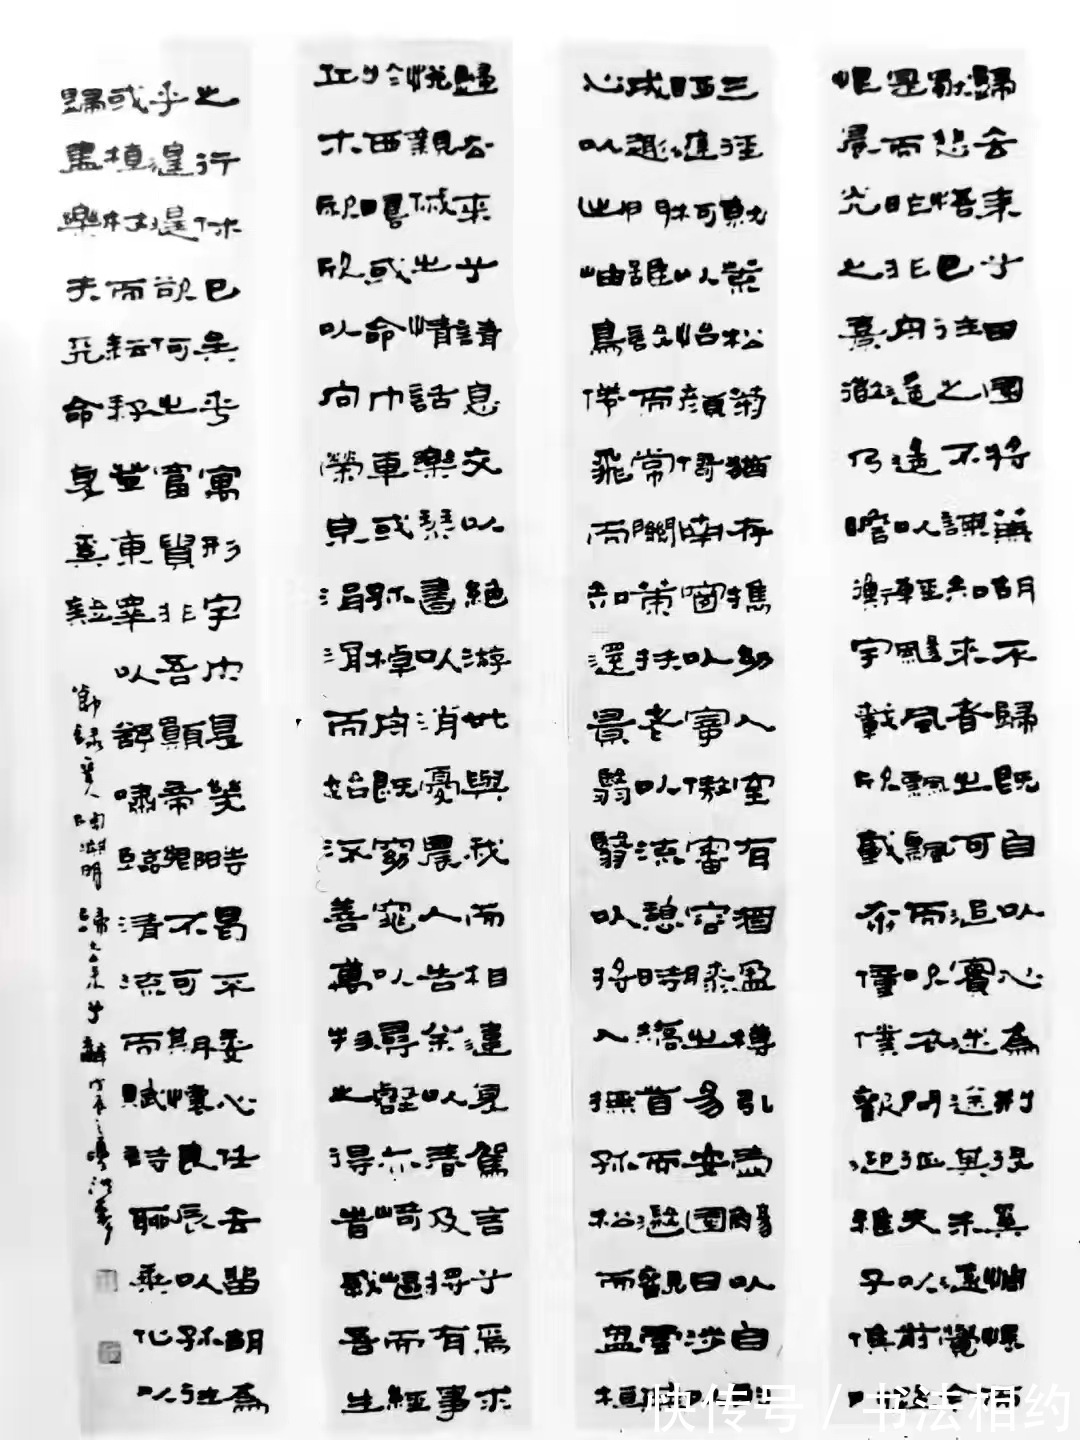 歸去来兮田園將蕪胡不歸既自以心為形役奚惆悵而
獨悲悟已往之不諫知来者之可追實迷途其未遠覺今
是而昨非舟遥遥以輕飏風飄飄而吹衣問征夫以前路
恨晨光之熹微乃瞻衡宇載欣載奔僮僕歡迎稚子候門
三徑就荒松菊猶存攜幼入室有酒盈樽引壺觴以自酌
眄庭柯以怡顏倚南窗以寄傲審容膝之易安園日涉以
成趣門雖設而常關策扶老以流憩時矯首而遐觀雲無
心以出岫鳥倦飛而知還景翳翳以將入撫孤松而盤桓
歸去来兮請息交以絕游世與我而相違復駕言兮焉求
悅親戚之情話樂琴書以消憂農人告余以春及將有事
於西疇或命巾車或孤棹舟既窈窕以尋壑亦崎嶇而經
丘木欣欣以向榮泉涓涓而始流善萬物之得時感吾生
之行休已矣乎寓形宇内復幾時曷不委心任去留胡為
乎遑遑欲何之富貴非吾願帝鄉不可期懷良辰以孤往
或植杖而耘耔登東皋以舒嘯臨清流而賦詩聊乘化以
歸盡樂夫天命復奚疑
節錄晉人陶淵明歸去来兮辭
快传号/书法相约